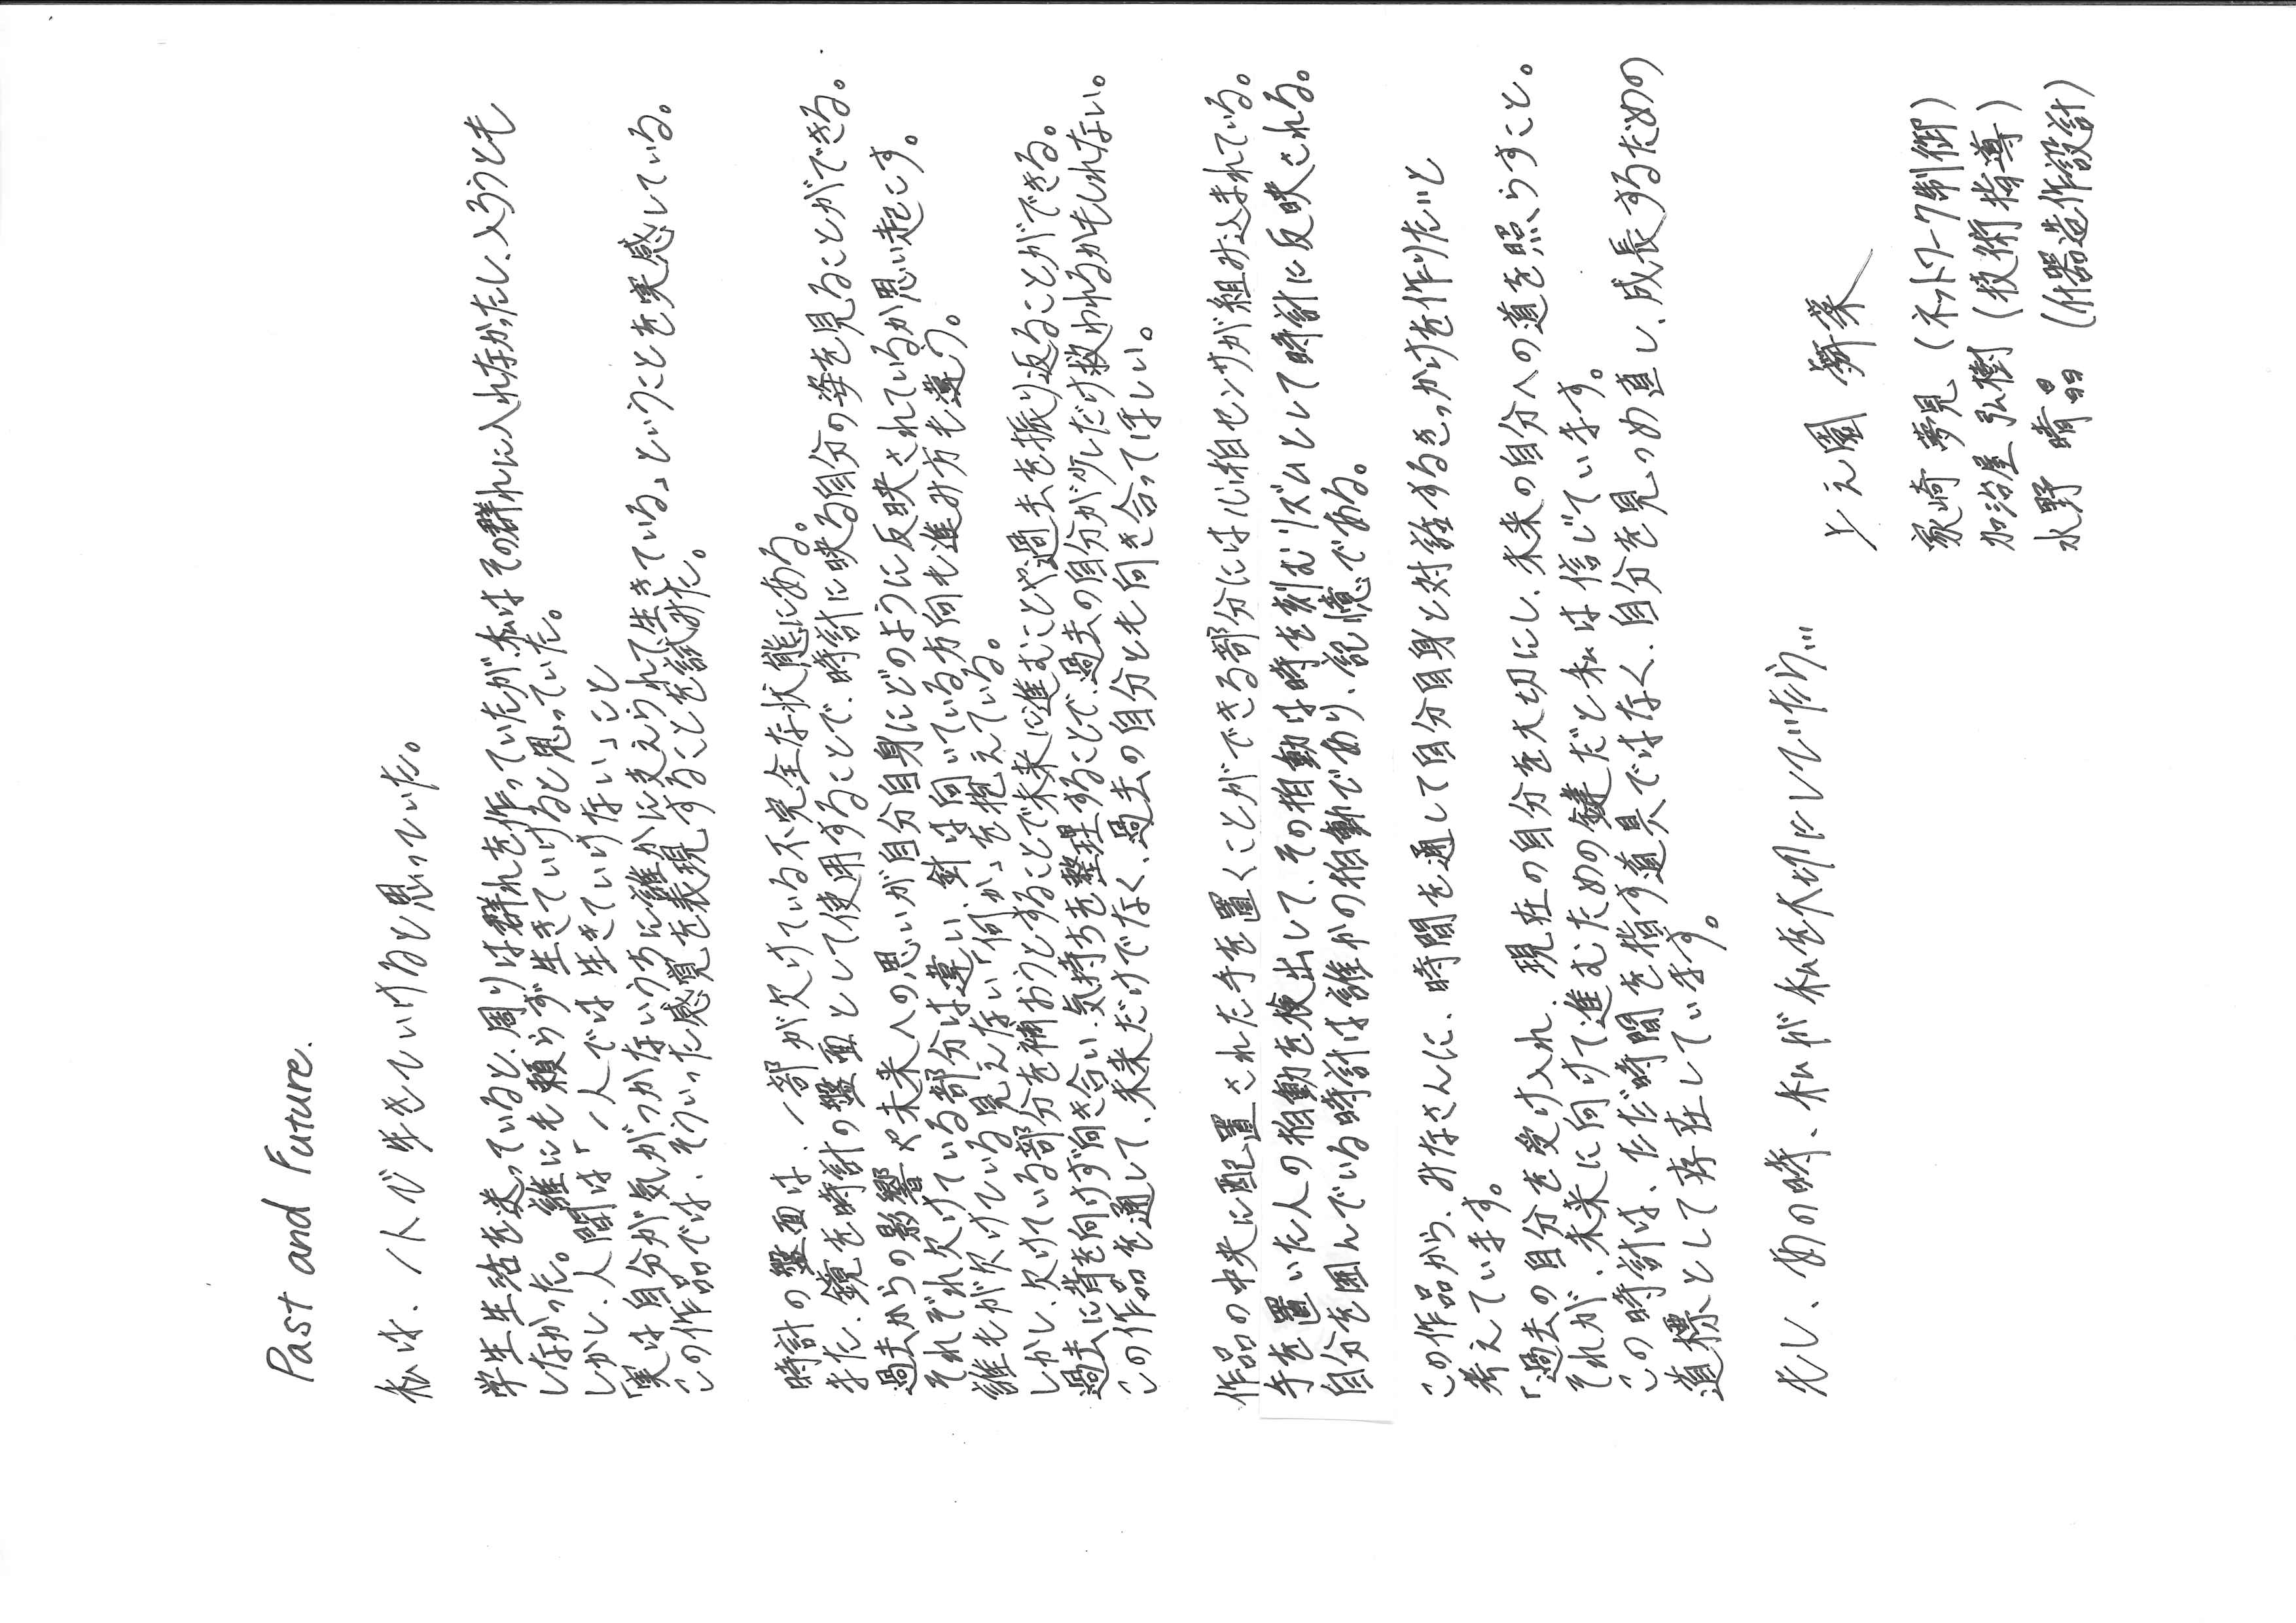 Past and Future.
私は、一人で生きていけると思っていた。
学生生活を送っていると、周りは群れを作っていたが、私はその群れに入れなかったし、入ろうとも
しなかった。誰にも頼らず生きていけると思っていた。
しかし、人間は「一人では生きていけない」こと
「実は自分が気がつかないうちに誰かに支えられて生きている」ということを実感している。
この作品では、そういった感覚を表現することを試みた。
時計の盤面は、一部が欠けている不完全な状態にある。
また、鏡を時計の盤面として使用することで、時計に映る自分の姿を見ることができる。
過去からの影響や未来への思いが自分自身にどのように反映されているか思い起こす。
それぞれ欠けている部分は違い、針は向いている方向も進み方も違う。
誰もが欠けている見えない「何か」を抱えている。
しかし、欠けている部分を補おうとすることで未来に進むことや過去を振り返ることができる。
過去に背を向けず向き合い、気持ちを整理することで、過去の自分が少しだけ救われるかもしれない。
この作品を通して、未来だけでなく、過去の自分とも向き合ってほしい。
作品の中央に配置された手を置くことができる部分には心拍センサが組み込まれている。
手を置いた人の拍動を検出して、その拍動は時を刻むリズムとして時計に反映される。
自分を囲んでいる時計は誰かの拍動であり、記憶である。
この作品から、みなさんに、時間を通して自分自身と対話するきっかけを作りたいと
考えています。
「過去の自分を受け入れ、現在の自分を大切にし、未来の自分への道を照らすこと。
それが、未来に向けて進むための鍵だと私は信じています。
この時計は、ただ時間を指す道具ではなく、自分を見つめ直し、成長するための
道標として存在しています。
もし、あの時、私が私を大切にしていたら...
上之園 舞菜
家崎 夢見（ネットワーク制御）
加治屋 弘樹（技術指導）
水野 晴晶（什器造作設計）